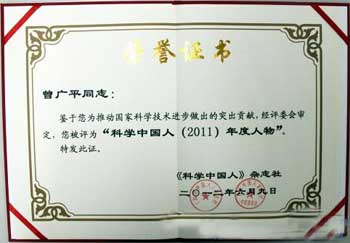 荣誉证书
曾广平同志：
鉴于您为推动国家科学技术进步做出的突出贡献，经评委会审
定，您被评为“科学中国人（2011）年度人物”。
特发此证。
《科学中国人》杂志社
二〇一二年六月九日